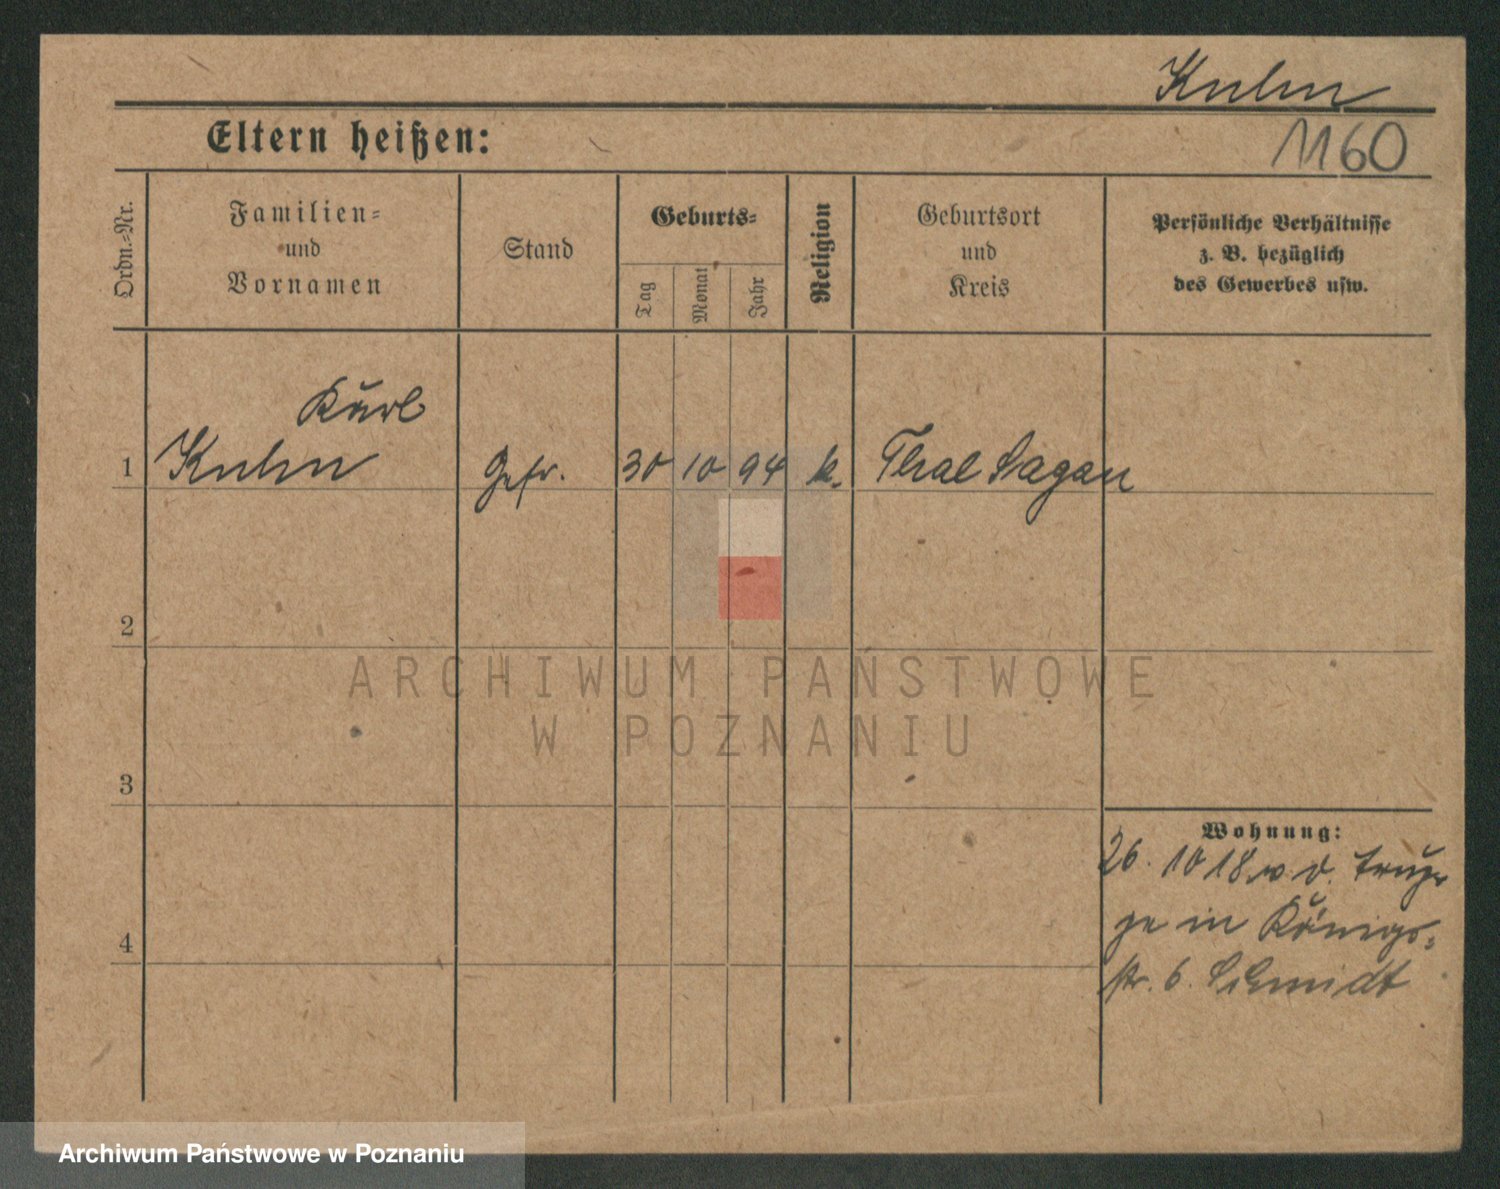 Kuhn
Eltern heißen:
1160
Ordn.-Nr.
Familien-
und
Vornamen
Stand
Geburts-
Tag
Monat
Jahr
Religion
Geburtsort
und
Kreis
Persönliche Verhältnisse
z. B. bezüglich
des Gewerbes usw.
Karl
1 Kuhn Gefr. 30 10 94 k. Thal Sagan
2
3
4
Wohnung:
26. 10 18 v. d.
in Königs-
str. 6. Schmidt
ARCHIWUM PAŃSTWOWE
W POZNANIU
Archiwum Państwowe w Poznaniu